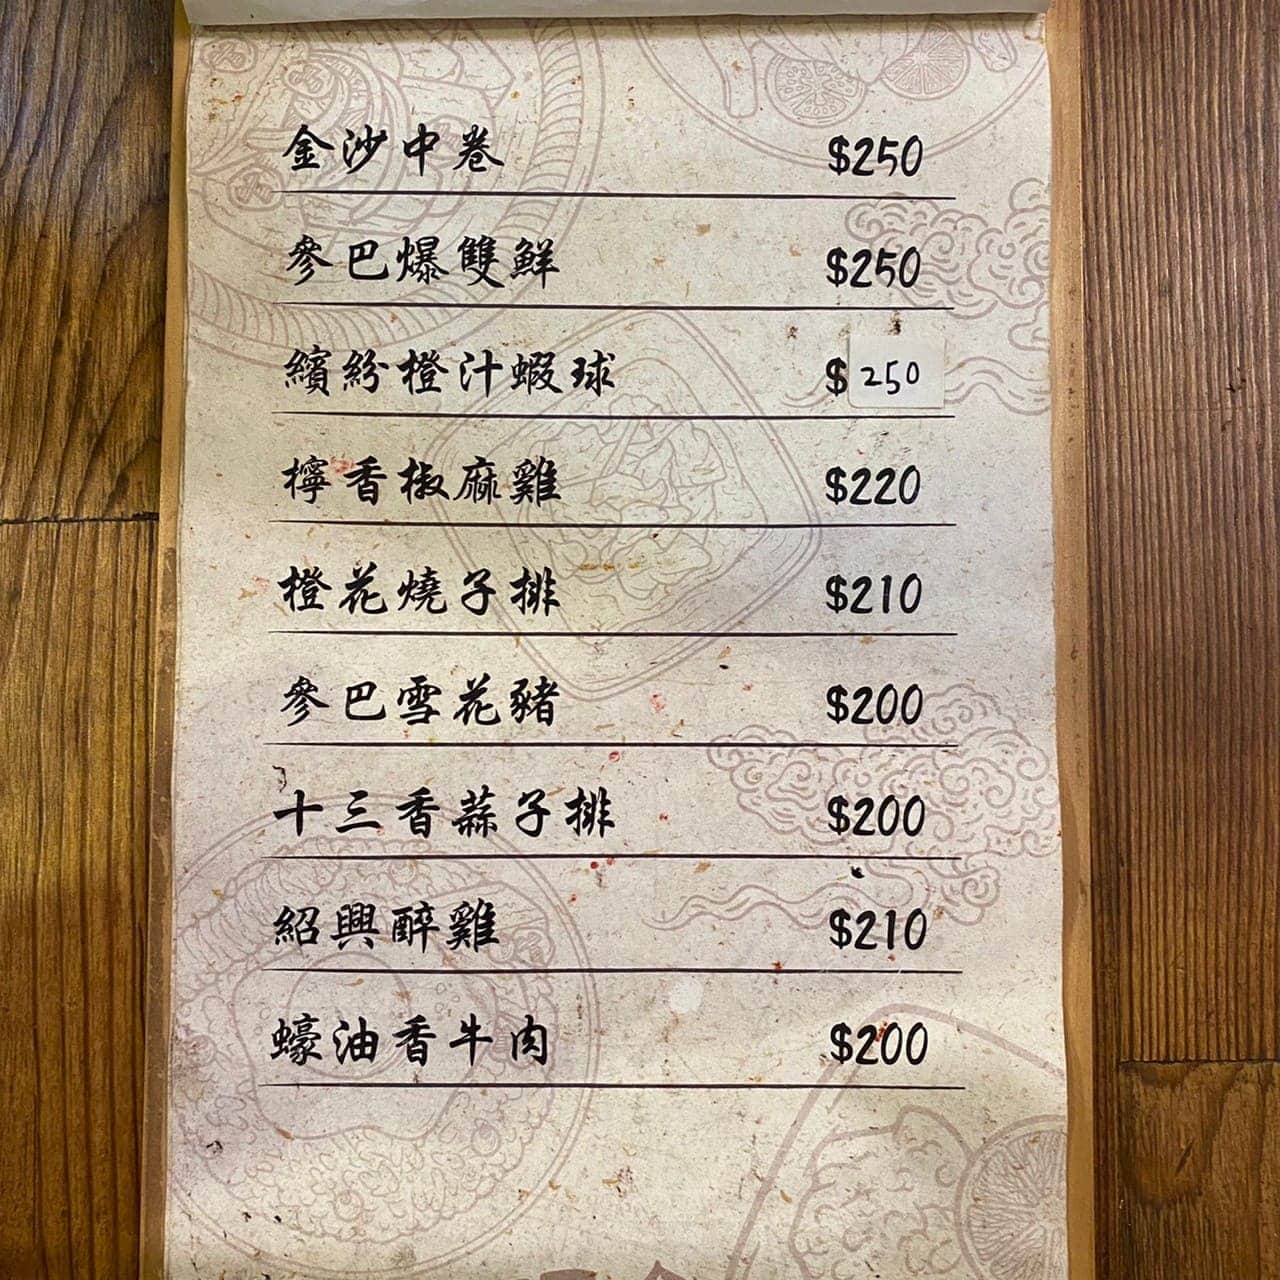 金沙中卷 $250
參巴爆雙鮮 $250
繽紛橙汁蝦球 $250
檸香椒麻雞 $220
橙花燒子排 $210
參巴雪花豬 $200
十三香蒜子排 $200
紹興醉雞 $210
蠔油香牛肉 $200